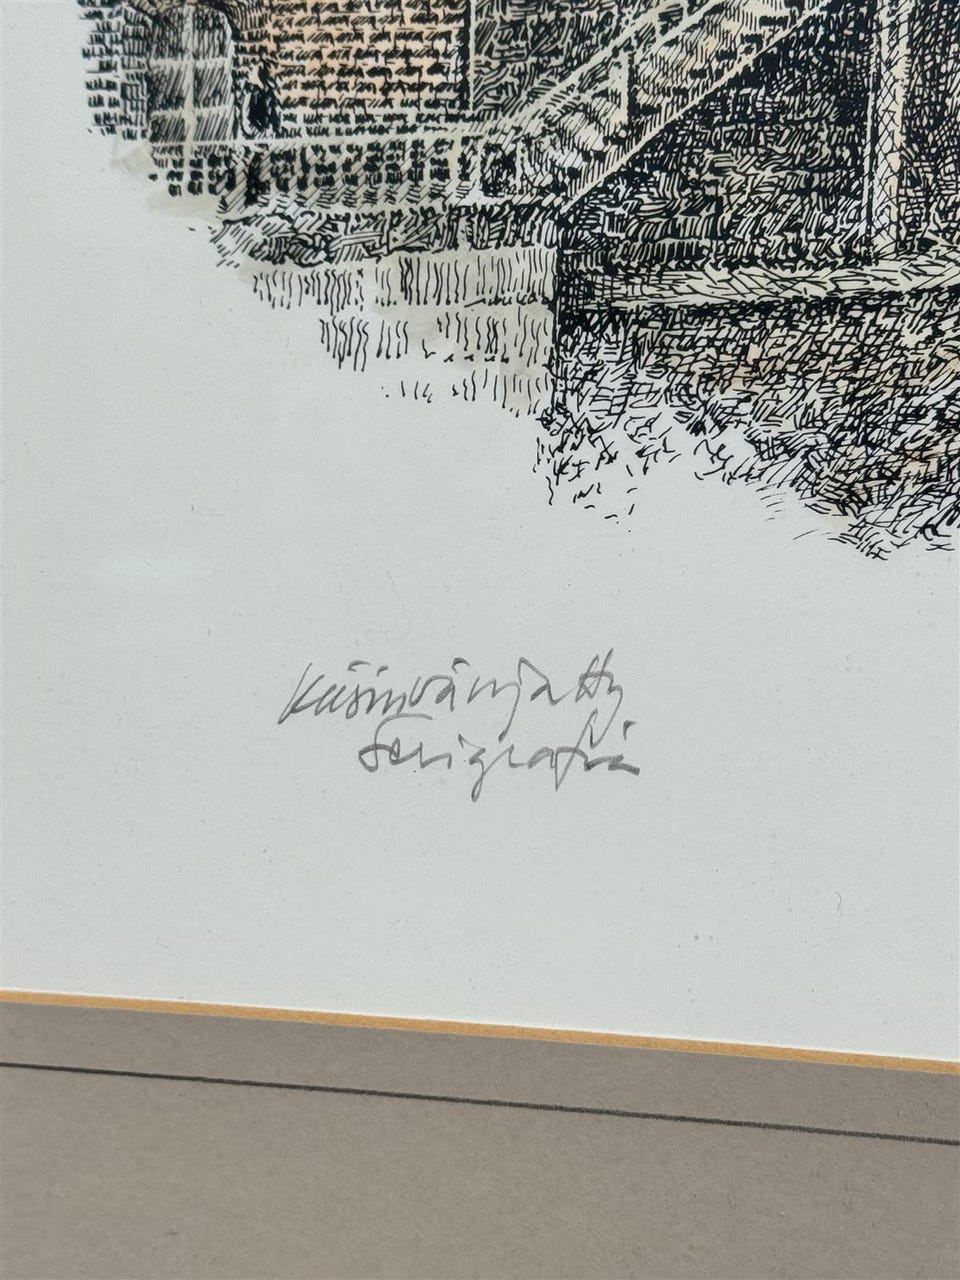 Käsinvärjätty
Serigrafia